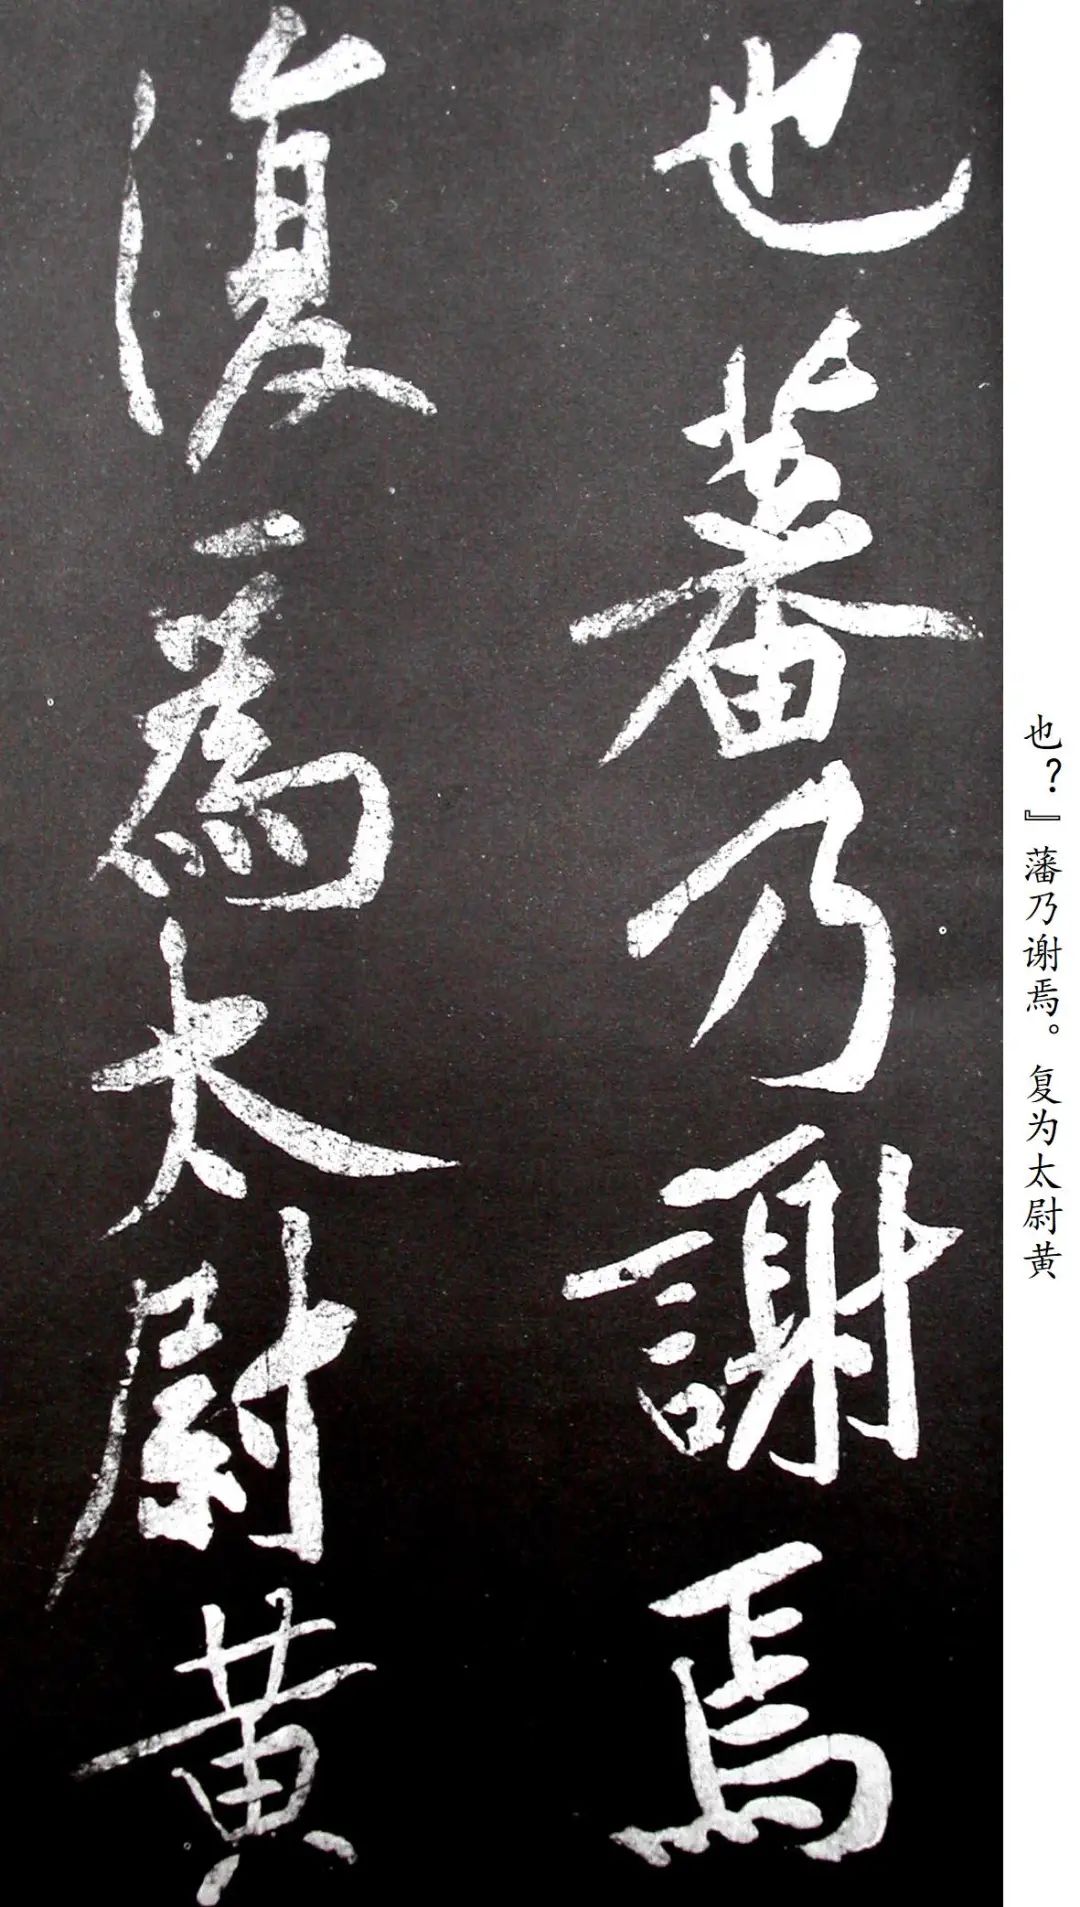 也蕃乃謝焉
復為太尉黄
也？』藩乃谢焉。复为太尉黄